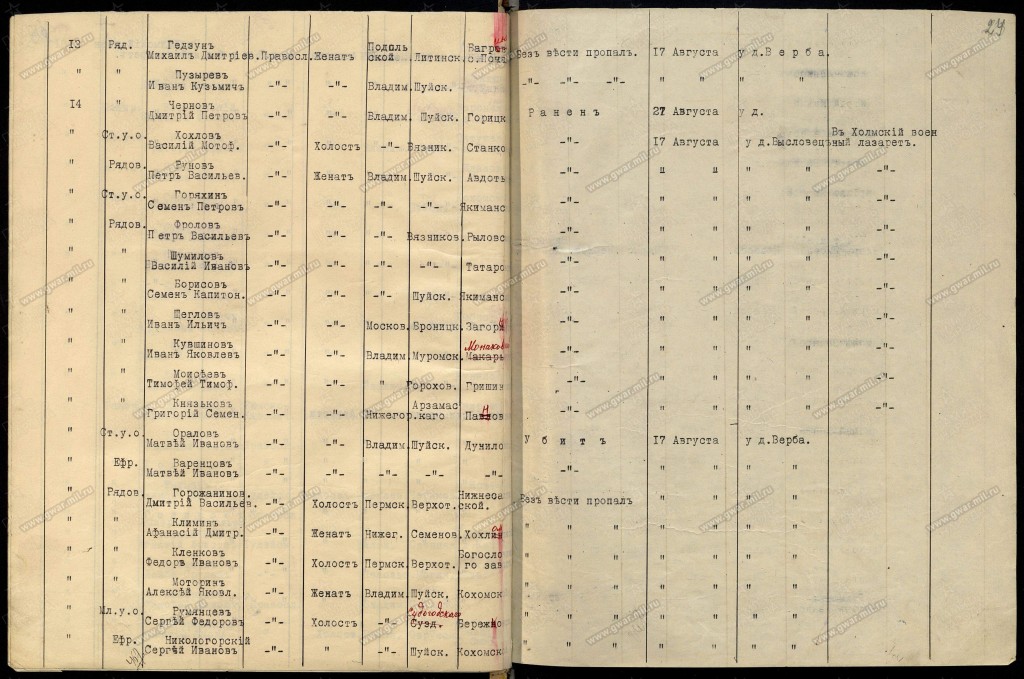 27
13 Ряд. Гедзунъ Подоль Багри
Михаилъ Дмитріев. Правосл. Женатъ ской Литинск. с.Поча Безъ вѣсти пропалъ. 17 Августа у д.Верба.
" " Пузыревъ
Иванъ Кузьмичъ -"- -"- Владим. Шуйск. -"- -"- -"- " " " "
14 " Черновъ
Дмитрій Петровъ -"- -"- Владим. Шуйск. Горицк Раненъ 27 Августа у д.
" Ст.у.о. Хохловъ Въ Холмскій воен
Василій Мотоф. -"- Холостъ -"- Вязник. Станко -"- 17 Августа у д.Высловецъ ный лазаретъ.
" Рядов. Руновъ
Петръ Васильев. -"- Женатъ Владим. Шуйск. Авдоть -"- " " " " -"-
" Ст.у.о. Горяхинъ
Семенъ Петровъ -"- -"- -"- -"- Якиманс -"- " " " " -"-
" Рядов. Фроловъ
Петръ Васильевъ -"- -"- -"- Вязников. Рыловс -"- " " " " -"-
" " Шумиловъ
Василій Ивановъ -"- -"- -"- -"- Татаро -"- " " " " -"-
" " Борисовъ
Семенъ Капитон. -"- -"- -"- Шуйск. Якиманс -"- " " " " -"-
" " Щегловъ
Иванъ Ильичъ -"- -"- Москов. Броницк. Загоря -"- " " " " -"-
" " Кувшиновъ Монахов
Иванъ Яковлевъ -"- -"- Владим. Муромск. Макарь -"- " " " " -"-
" " Моисѣевъ
Тимофей Тимоф. -"- -"- " Горохов. Гришин -"- " " " " -"-
" " Князьковъ Арзамас
Григорій Семен. -"- -"- Нижегор. каго Панов -"- " " " " -"-
" Ст.у.о. Ораловъ
Матвѣй Ивановъ -"- -"- Владим. Шуйск. Дунило Убитъ 17 Августа у д.Верба.
" Ефр. Варенцовъ
Матвѣй Ивановъ -"- -"- -"- -"- -"- -"- " " " "
" Рядов. Горожанинов. Нижнеса
Дмитрій Васильев. -"- Холостъ Пермск. Верхот. ской. Безъ вѣсти пропалъ " " " "
" " Климинъ
Афанасій Дмитр. -"- Женатъ Нижег. Семенов. Хохлин " " " " " " "
" " Кленковъ Богосло
Федоръ Ивановъ -"- Холостъ Пермск. Верхот. го зав " " " " " " "
" " Моторинъ
Алексѣй Яковл. -"- Женатъ Владим. Шуйск. Кохомск " " " " " " "
" Мл.у.о. Румянцевъ Судогодскаго
Сергѣй Федоровъ -"- Холостъ -"- Сузд. Бережно " " " " " " "
" Ефр. Никологорскій
Сергѣй Ивановъ -"- " -"- Шуйск. Кохомско " " " " " " "
www.gwar.mil.ru